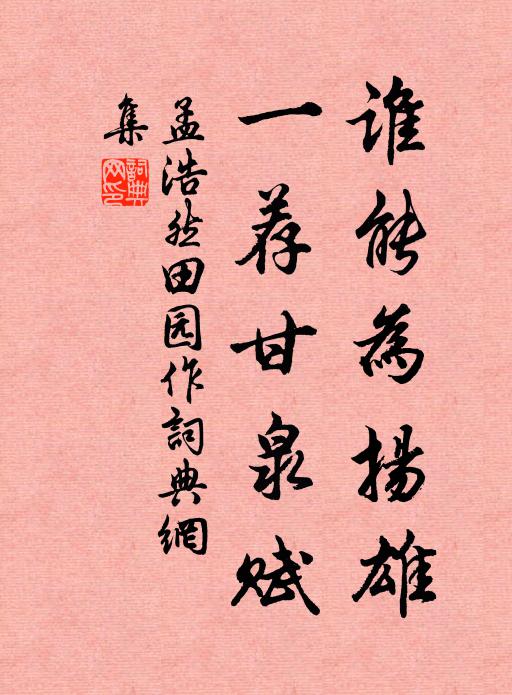 谁能為揚雄
一荐甘泉赋
孟浩然田园作詞典網
集
詞典
网印